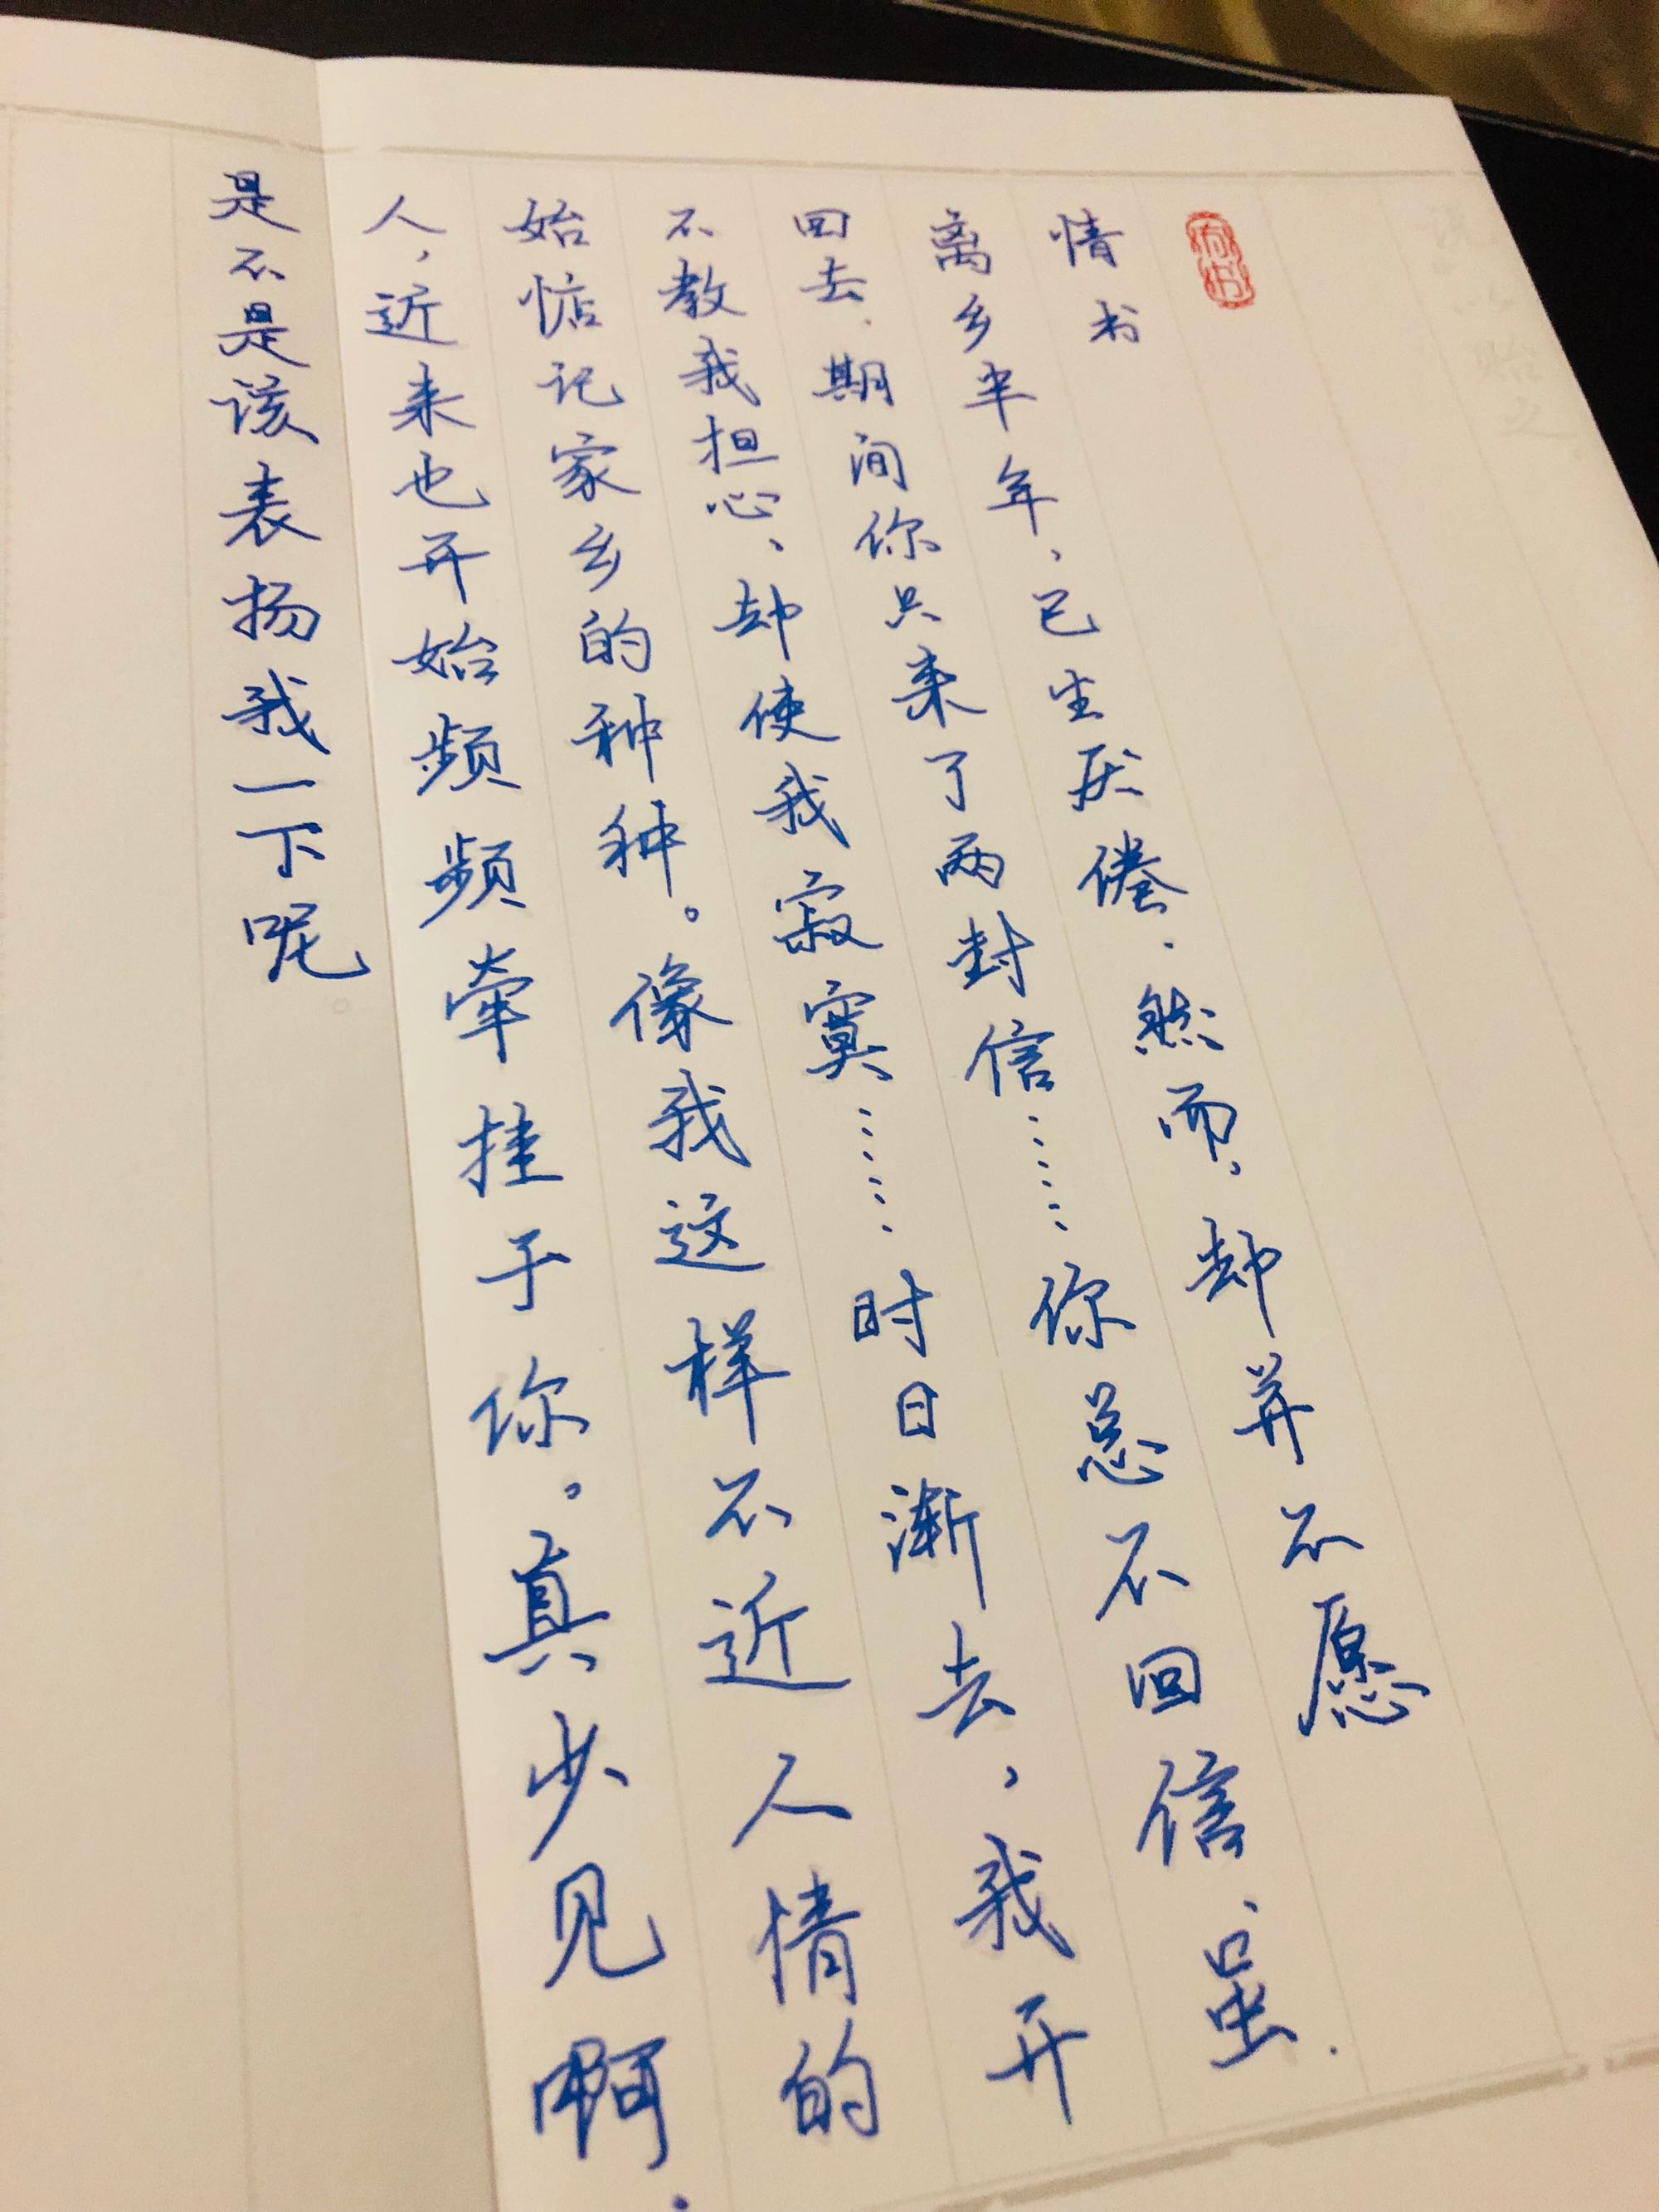 情书
离乡半年，已生厌倦，然而，却并不愿
回去，期间你只来了两封信……你总不回信、虽
不教我担心、却使我寂寞……时日渐去，我开
始惦记家乡的种种。像我这样不近人情的
人，近来也开始频频牵挂于你。真少见啊，
是不是该表扬我一下呢